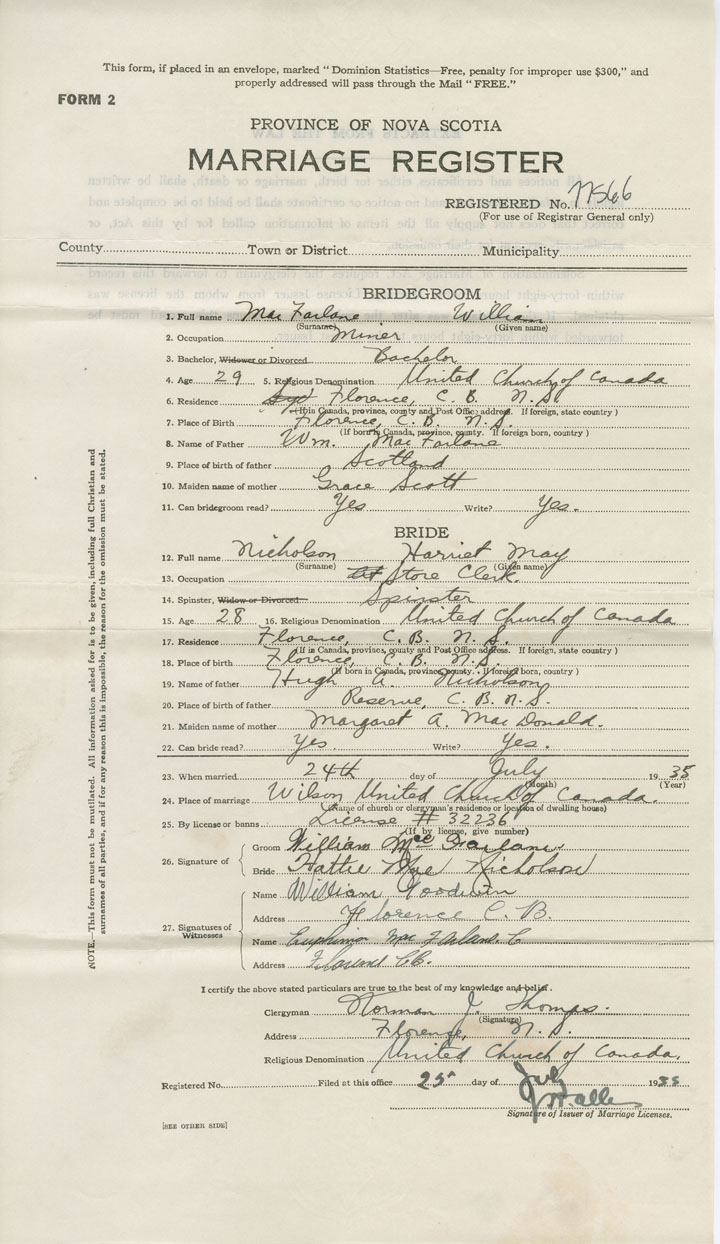 This form, if placed in an envelope, marked "Dominion Statistics—Free, penalty for improper use $300," and
properly addressed will pass through the Mail "FREE."
FORM 2
PROVINCE OF NOVA SCOTIA
MARRIAGE REGISTER
REGISTERED No. 77566
(For use of Registrar General only)
County Town or District Municipality
BRIDEGROOM
1. Full name Mac Farlane William
(Surname) (Given name)
2. Occupation Miner
3. Bachelor, Widower or Divorced Bachelor
4. Age 29 5. Religious Denomination United Church of Canada
6. Residence Florence, C. B. N. S.
(If in Canada, province, county and Post Office address. If foreign, state country)
7. Place of Birth Florence, C. B. N. S.
(If born in Canada, province, county. If foreign born, country)
8. Name of Father Wm. Mac Farlane
9. Place of birth of father Scotland
10. Maiden name of mother Grace Scott
11. Can bridegroom read? Yes Write? Yes.
BRIDE
12. Full name Nicholson Harriet May
(Surname) (Given name)
13. Occupation Store Clerk.
14. Spinster, Widow or Divorced Spinster
15. Age 28 16. Religious Denomination United Church of Canada
17. Residence Florence, C. B. N. S.
(If in Canada, province, county and Post Office address. If foreign, state country)
18. Place of birth Florence, C. B. N. S.
(If born in Canada, province, county. If foreign born, country)
19. Name of father Hugh A. Nicholson
20. Place of birth of father Reserve, C. B. N. S.
21. Maiden name of mother Margaret A. Mac Donald.
22. Can bride read? Yes Write? Yes.
23. When married 24th day of July 1935
(Month) (Year)
24. Place of marriage Wilson United Church of Canada.
(Name of church or clergymen's residence or location of dwelling house)
25. By license or banns License # 32236
(If by license, give number)
26. Signature of
Groom William Mac Farlane
Bride Hattie Mae Nicholson
27. Signatures of Witnesses
Name William Goodwin
Address Florence C. B.
Name Euphimia Mac Farlane
Address Florence CB.
I certify the above stated particulars are true to the best of my knowledge and belief.
Clergyman Norman J. Thomps.
(Signature)
Address Florence, N. S.
Religious Denomination United Church of Canada.
Registered No. Filed at this office 25 day of July 1935
Signature of Issuer of Marriage Licenses.
[SEE OTHER SIDE]
NOTE.—This form must not be mutilated. All information asked for is to be given, including full Christian and
surnames of all parties, and if for any reason this is impossible, the reason for the omission must be stated.